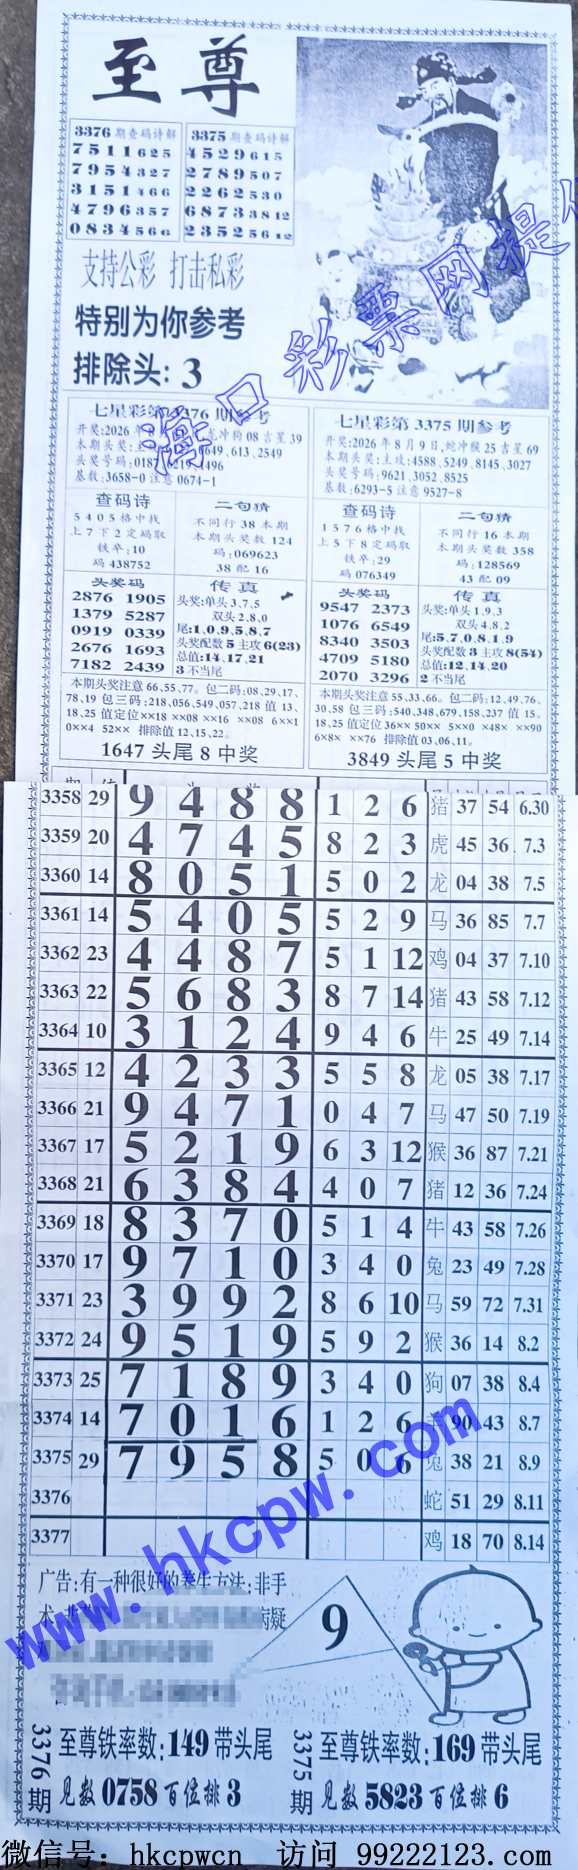 至尊
3376期查码诗解
7511625
7954327
3151466
4796357
0834566
3375期查码诗解
4529615
2789507
2262530
68733812
23525612
支持公彩 打击私彩
特别为你参考
排除头: 3
海口彩票网提
七星彩第3376期参考
开奖:2026年 龙冲狗08吉星39
本期头奖:主攻: 649,613,2549
头奖号码:018 ,6219, 496
基数:3658-0注意0674-1
查码诗
5405格中找
上7下2定码取
铁卒:10
码438752
二句猜
不同行38本期
本期头奖数124
码:069623
38配16
头奖码
2876 1905
1379 5287
0919 0339
2676 1693
7182 2439
传真
头奖:单头3,7,5
双头2,8,0
尾:1,0,9,5,8,7
头奖配数5主攻6(23)
总值:14,17,21
3不当尾
本期头奖注意66,55,77。包二码:08,29,17,
78,19包三码:218,056,549,057,218值13,
18,25值定位××18 ××08 ××16 ××08 6××1
0××4 52×× 排除值12,15,22。
1647头尾8中奖
七星彩第3375期参考
开奖:2026年8月9日,蛇冲猴25吉星69
本期头奖:主攻:4588,5249,8145,3027
头奖号码:9621,3052,8525
基数:6293-5注意9527-8
查码诗
1576格中找
上5下8定码取
铁卒:29
码076349
二句猜
不同行16本期
本期头奖数358
码:128569
43配09
头奖码
9547 2373
1076 6549
8340 3503
4709 5180
2070 3296
传真
头奖:单头1,9,3
双头4,8,2
尾:5,7,0,8,1,9
头奖配数3主攻8(54)
总值:12,14,20
2不当尾
本期头奖注意55,33,66。包二码:12,49,76,
30,58包三码:540,348,679,158,237值15,
18,25值定位36×× 50×× 5××0 ×48× ××90
6×8× ××76 排除值03,06,11。
3849头尾5中奖
3358 29 9 4 8 8 1 2 6 猪 37 54 6.30
3359 20 4 7 4 5 8 2 3 虎 45 36 7.3
3360 14 8 0 5 1 5 0 2 龙 04 38 7.5
3361 14 5 4 0 5 5 2 9 马 36 85 7.7
3362 23 4 4 8 7 5 1 12 鸡 04 37 7.10
3363 22 5 6 8 3 8 7 14 猪 43 58 7.12
3364 10 3 1 2 4 9 4 6 牛 25 49 7.14
3365 12 4 2 3 3 5 5 8 龙 05 38 7.17
3366 21 9 4 7 1 0 4 7 马 47 50 7.19
3367 17 5 2 1 9 6 3 12 猴 36 87 7.21
3368 21 6 3 8 4 4 0 7 猪 12 36 7.24
3369 18 8 3 7 0 5 1 4 牛 43 58 7.26
3370 17 9 7 1 0 3 4 0 兔 23 49 7.28
3371 23 3 9 9 2 8 6 10 马 59 72 7.31
3372 24 9 5 1 9 5 9 2 猴 36 14 8.2
3373 25 7 1 8 9 3 4 0 狗 07 38 8.4
3374 14 7 0 1 6 1 2 6 90 43 8.7
3375 29 7 9 5 8 5 0 6 兔 38 21 8.9
3376 蛇 51 29 8.11
3377 鸡 18 70 8.14
www.hkcpw.com
广告:有一种很好的养生方法:非手
术, 病疑
9
3376期
至尊铁率数:149带头尾
见数0758百位排3
3375期
至尊铁率数:169带头尾
见数5823百位排6
微信号: hkcpwcn 访问 99222123.com